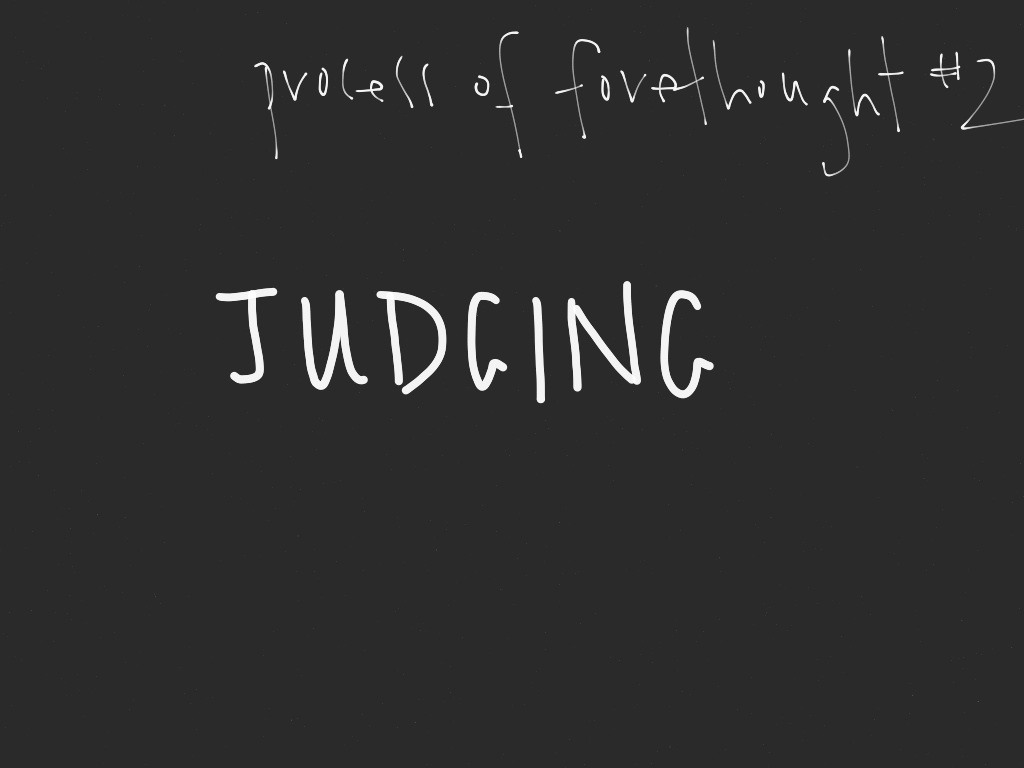 process of forethought #2
JUDGING